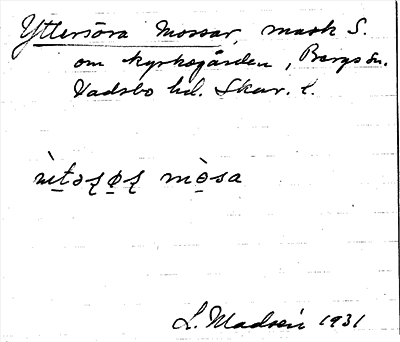 Yttersöra Mossar, mosk S.
om kyrkogården, Bergs sn.
Vadsbo hd. Skar. l.
mòsa
L. Madsén 1931